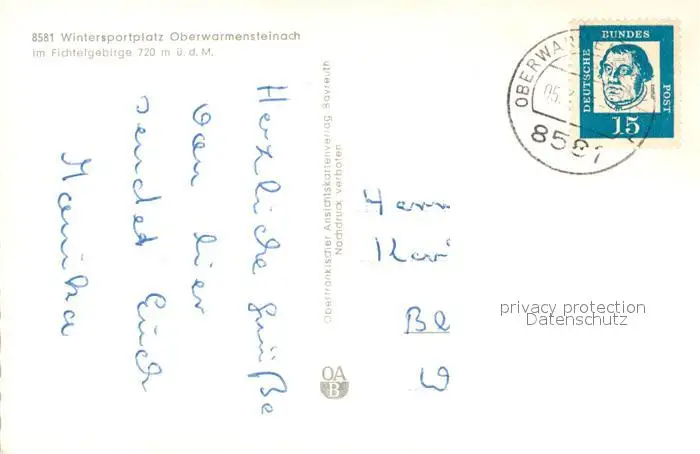 8581 Wintersportplatz Oberwarmensteinach
im Fichtelgebirge 720 m ü. d. M.
Herzliche Grüße
von hier
sendet Euch
Monika
Obertränkischer Ansichtskartenverlag Bayreuth
Nachdruck verboten
OA
B
Herrn
DEUTSCHE BUNDES POST
15
OBERWA
05.
8581
privacy protection
Datenschutz